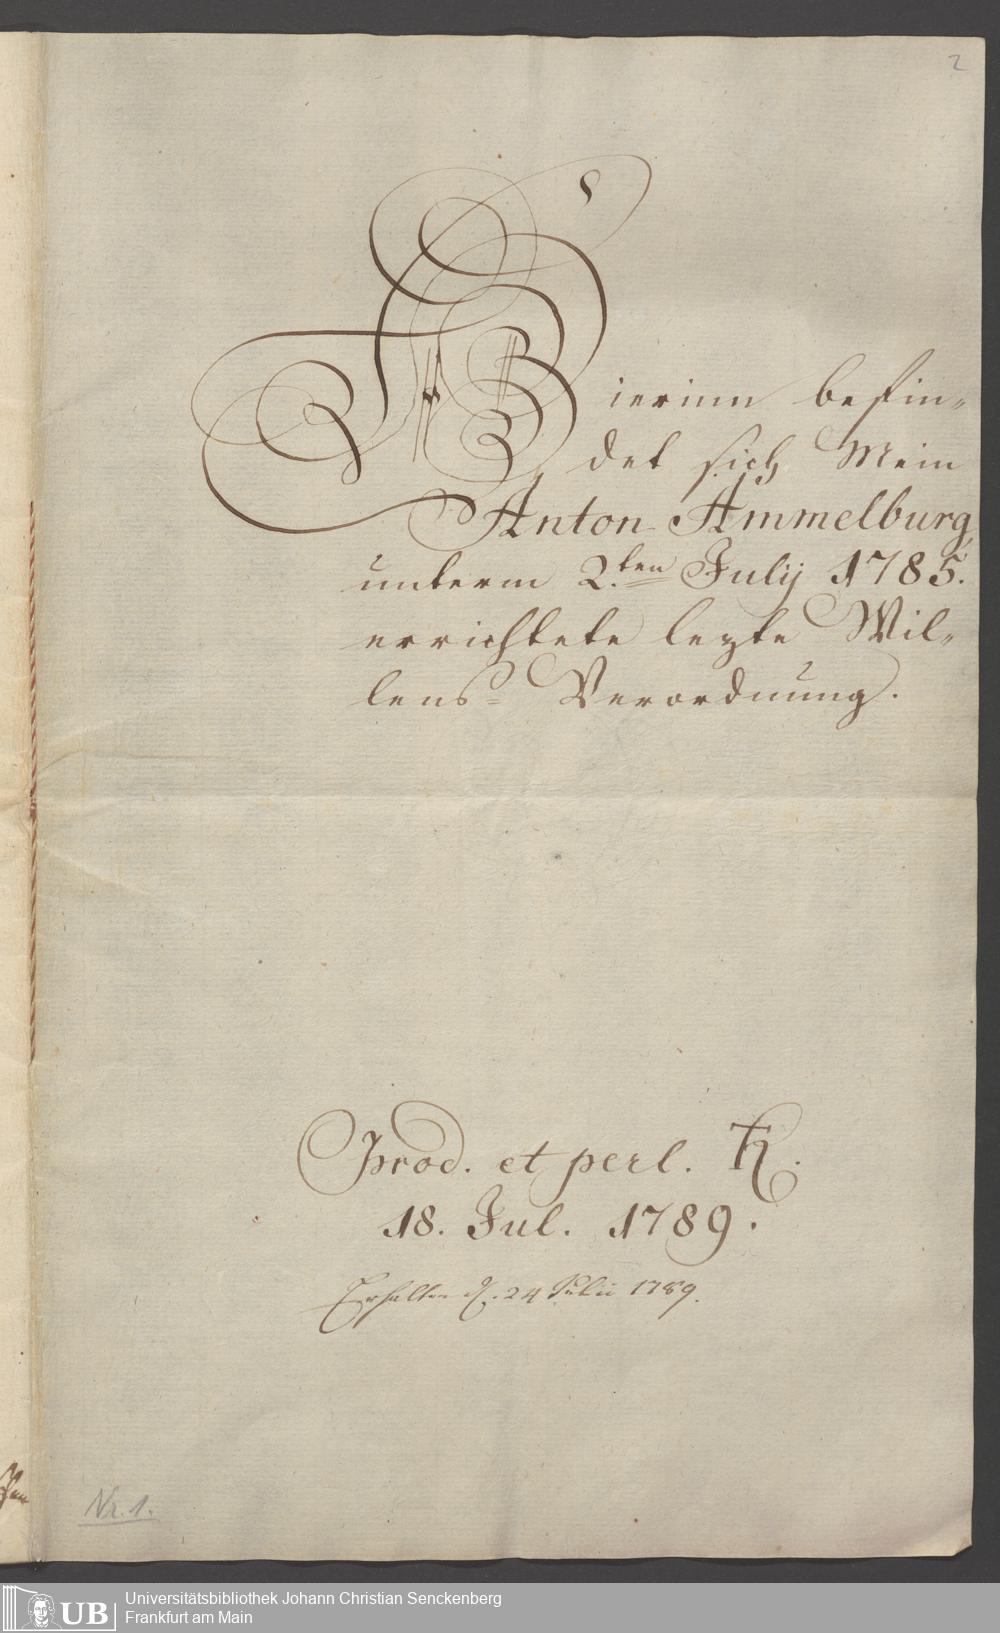 2
Hierinn befin-
det sich Mein
Anton Ammelburg
unterm 2.ten Julij 1785.
errichtete lezte Wil-
lens-Verordnung.
Prod. et perl.
18. Jul. 1789.
Erhalten d. 24 Julii 1789.
Nr. 1.
UB
Universitätsbibliothek Johann Christian Senckenberg
Frankfurt am Main